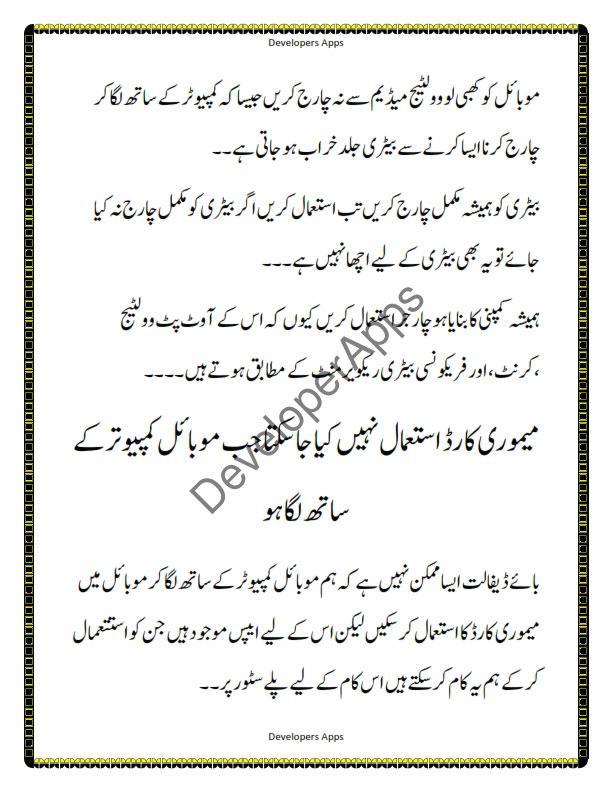 Developers Apps
موبائل کو کبھی لو وولٹیج میڈیم سے نہ چارج کریں جیسا کہ کمپیوٹر کے ساتھ لگا کر
چارج کرنا ایسا کرنے سے بیٹری جلد خراب ہو جاتی ہے۔۔
بیٹری کو ہمیشہ مکمل چارج کریں تب استعمال کریں اگر بیٹری کو مکمل چارج نہ کیا
جائے تو یہ بھی بیٹری کے لیے اچھا نہیں ہے۔۔۔
ہمیشہ کمپنی کا بنایا ہو چارجر استعمال کریں کیوں کہ اس کے آوٹ پٹ وولٹیج
،کرنٹ،اور فریکونسی بیٹری ریکویرمنٹ کے مطابق ہوتے ہیں۔۔۔۔
میموری کارڈ استعمال نہیں کیا جا سکتا جب موبائل کمپیوتر کے
ساتھ لگا ہو
بائے ڈیفالت ایسا ممکن نہیں ہے کہ ہم موبائل کمپیوٹر کے ساتھ لگا کر موبائل میں
میموری کارڈ کا استعمال کر سکیں لیکن اس کے لیے ایپس موجود ہیں جن کو استتعمال
کر کے ہم یہ کام کر سکتے ہیں اس کام کے لیے پلے سٹور پر۔۔
DeveloperApps
Developers Apps